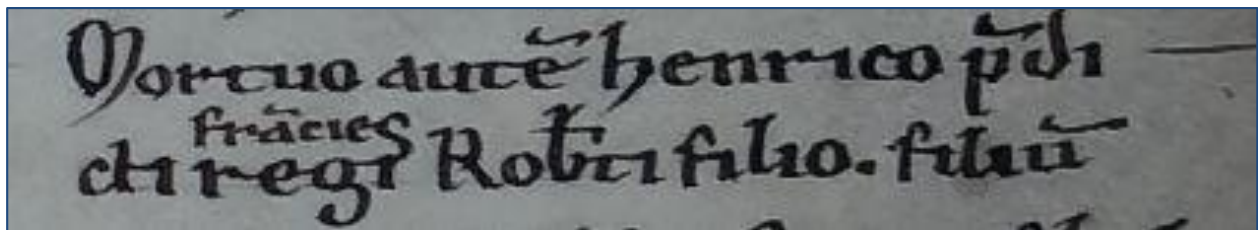 Mortuo autē henrico p̄di
frācies
cti regi Rob̄ti filio. filiū